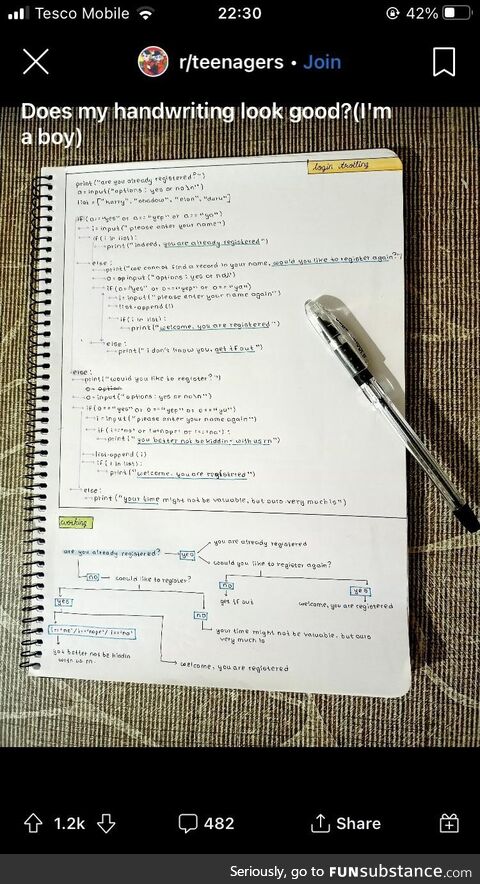 Tesco Mobile
22:30
42%
r/teenagers • Join
Does my handwriting look good?(I'm
a boy)
login trolling
print("are you already registered?")
a=input("options: yes or no\n")
list=["harry", "shadow", "elon", "daru"]
if(a=="yes" or a=="yep" or a=="ya")
i=input("please enter your name")
if(i in list):
print("indeed, you are already registered")
else:
print("we cannot find a record in your name, would you like to register again?")
input("options: yes or no")
if(a="yes" or a=="yep" or a=="ya")
i=input("please enter your name again")
list-append(i)
if(i in list):
print("welcome, you are registered")
else:
print("i don't know you, get tf out")
else:
print("would you like to register?")
o= option
o=input("options: yes or no\n")
if(o=="yes" or o=="yep" or o=="ya")
i=input("please enter your name again")
if(i=="no" or i=="nope" or i=="na"):
print("you better not be kiddin- with us rn")
list-append(i)
if(i in list):
print("welcome, you are registered")
else:
print("your time might not be valuable, but ours very much is")
working
are you already registered?
yes
you are already registered
would you like to register again?
no
would like to register?
no
yes
get tf out
welcome, you are registered
yes
no
your time might not be valuable, but ours
very much is
i=="no"/i=="nope"/i=="na"
you better not be kiddin
with us rn
welcome, you are registered
1.2k
482
Share
Seriously, go to FUNsubstance.com